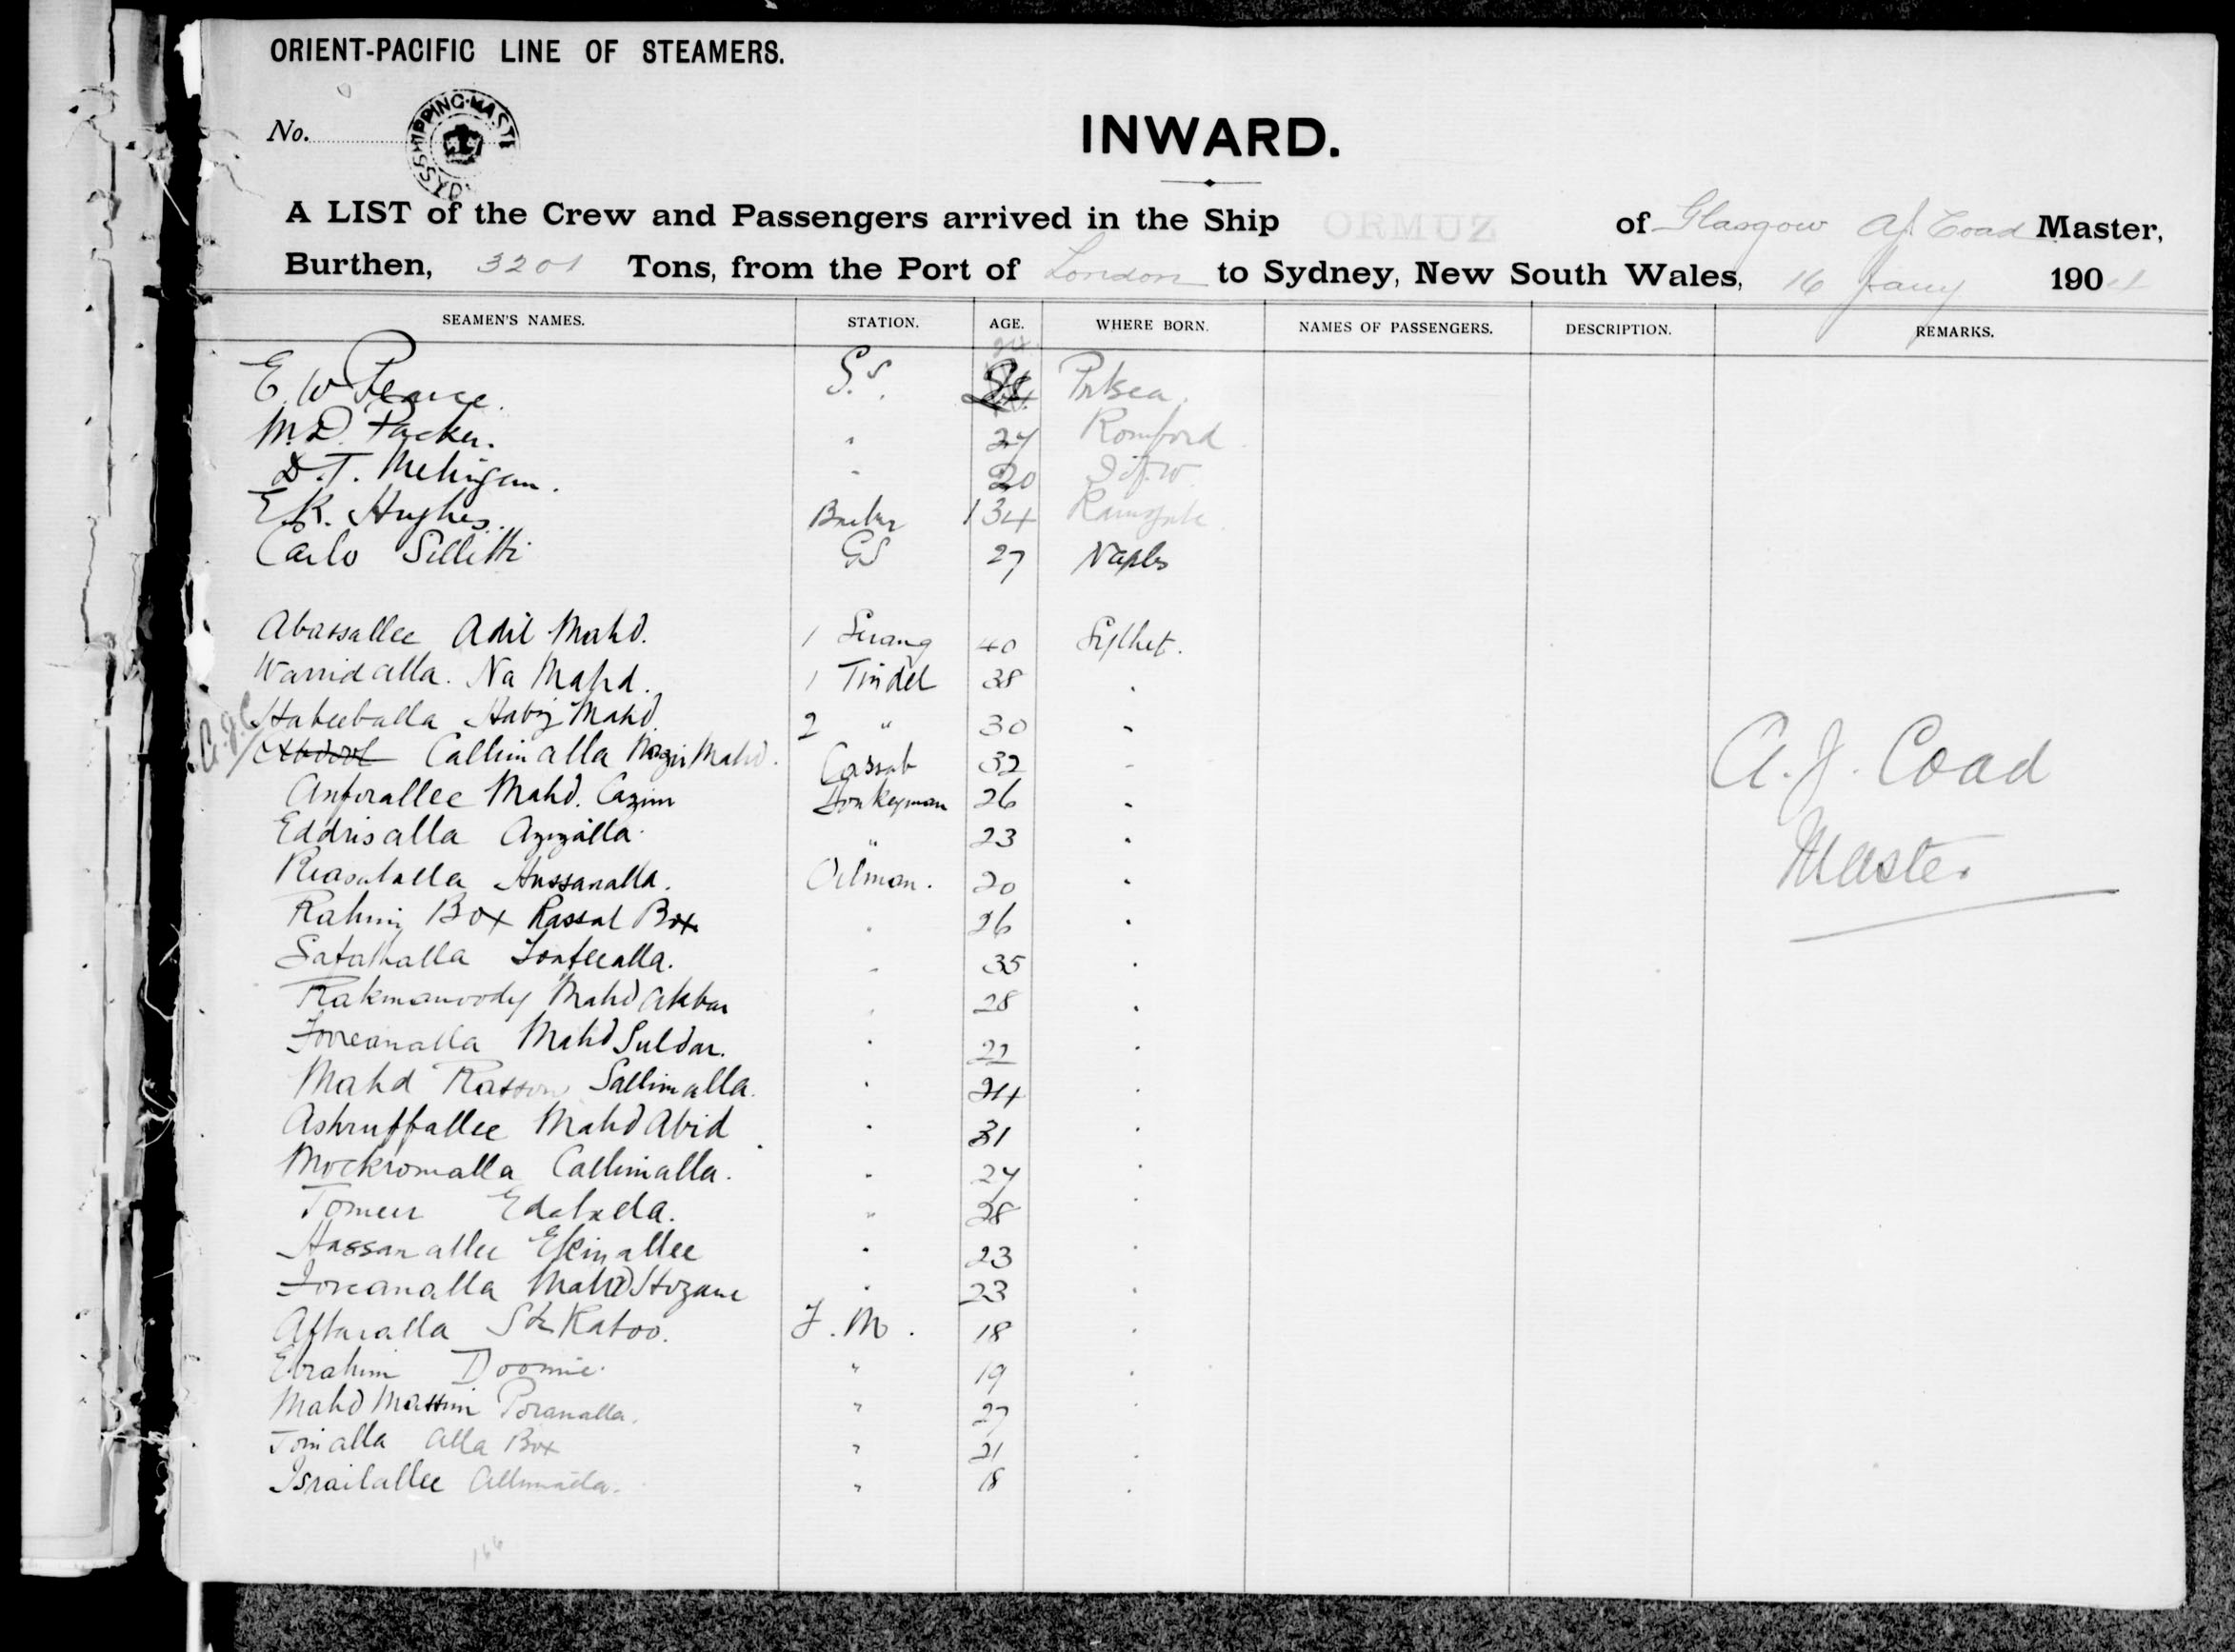 ORIENT-PACIFIC LINE OF STEAMERS.
No.
SHIPPING MAST
INWARD.
A LIST of the Crew and Passengers arrived in the Ship ORMUZ of Glasgow A.J. Coad Master,
Burthen, 3201 Tons, from the Port of London to Sydney, New South Wales, 16 Jany 1904
SEAMEN'S NAMES. STATION. AGE. WHERE BORN. NAMES OF PASSENGERS. DESCRIPTION. REMARKS.
E. W Pearce. S.S. Portsea.
M.D. Packer. " 24 Romford
D.T. Mehigan. " 20 I of W.
E.R. Hughes. Barber 34 Ramsgate.
Carlo Sillitti GS 27 Naples
Abassallee Adil Mahd. 1 Serang 40 Sylhet.
Warridalla. Na Mahd. 1 Tindel 38 "
A.J.C. Habeeballa Habiz Mahd 2 " 30 "
Callimalla Mahd. Cassab 32 "
Anforallee Mahd. Cazim Donkeyman 26 "
Eddrisalla Azizalla " 23 "
Riasatalla Hussanalla. Oilman. 20 "
Rahim Box Rassal Box " 26 "
Safatralla " 35 "
Rakmanoody Mahd Akbar " 28 "
Mahd Suldar. " 22 "
Mahd Sallimalla. " 24 "
Ashruffallee Mahd Abid " 31 "
Mockromalla Callimalla. " 24 "
" 28 "
Hassanallee " 23 "
Mahd " 23 "
Aftaralla Sk Katoo. F.M. 18 "
Ebrahim Doomie. " 19 "
Mahd Massim Poranalla. " 27 "
Joinalla Alla Box " 21 "
Israilallee " 18 "
A.J. Coad
Master
166